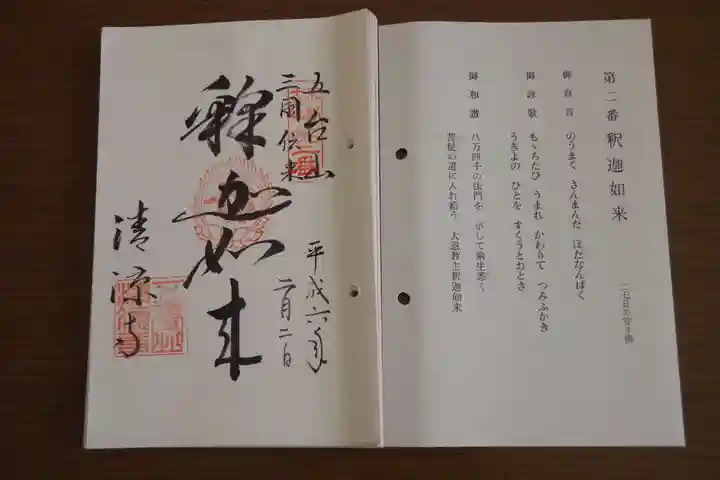 第二番 釈迦如来
二七日の守り佛
御真言 のうまく さんまんだ ぼだなんばく
御詠歌 もゝちたび うまれ かわりて つみふかき
うきよの ひとを すくうとおとさ
御和讃 八万四千の法門を 示して衆生悉く
菩提の道に入れ給う 大恩教主釈迦如来
五台山
三国伝来
釋迦如来
清凉寺
平成六年
二月二日